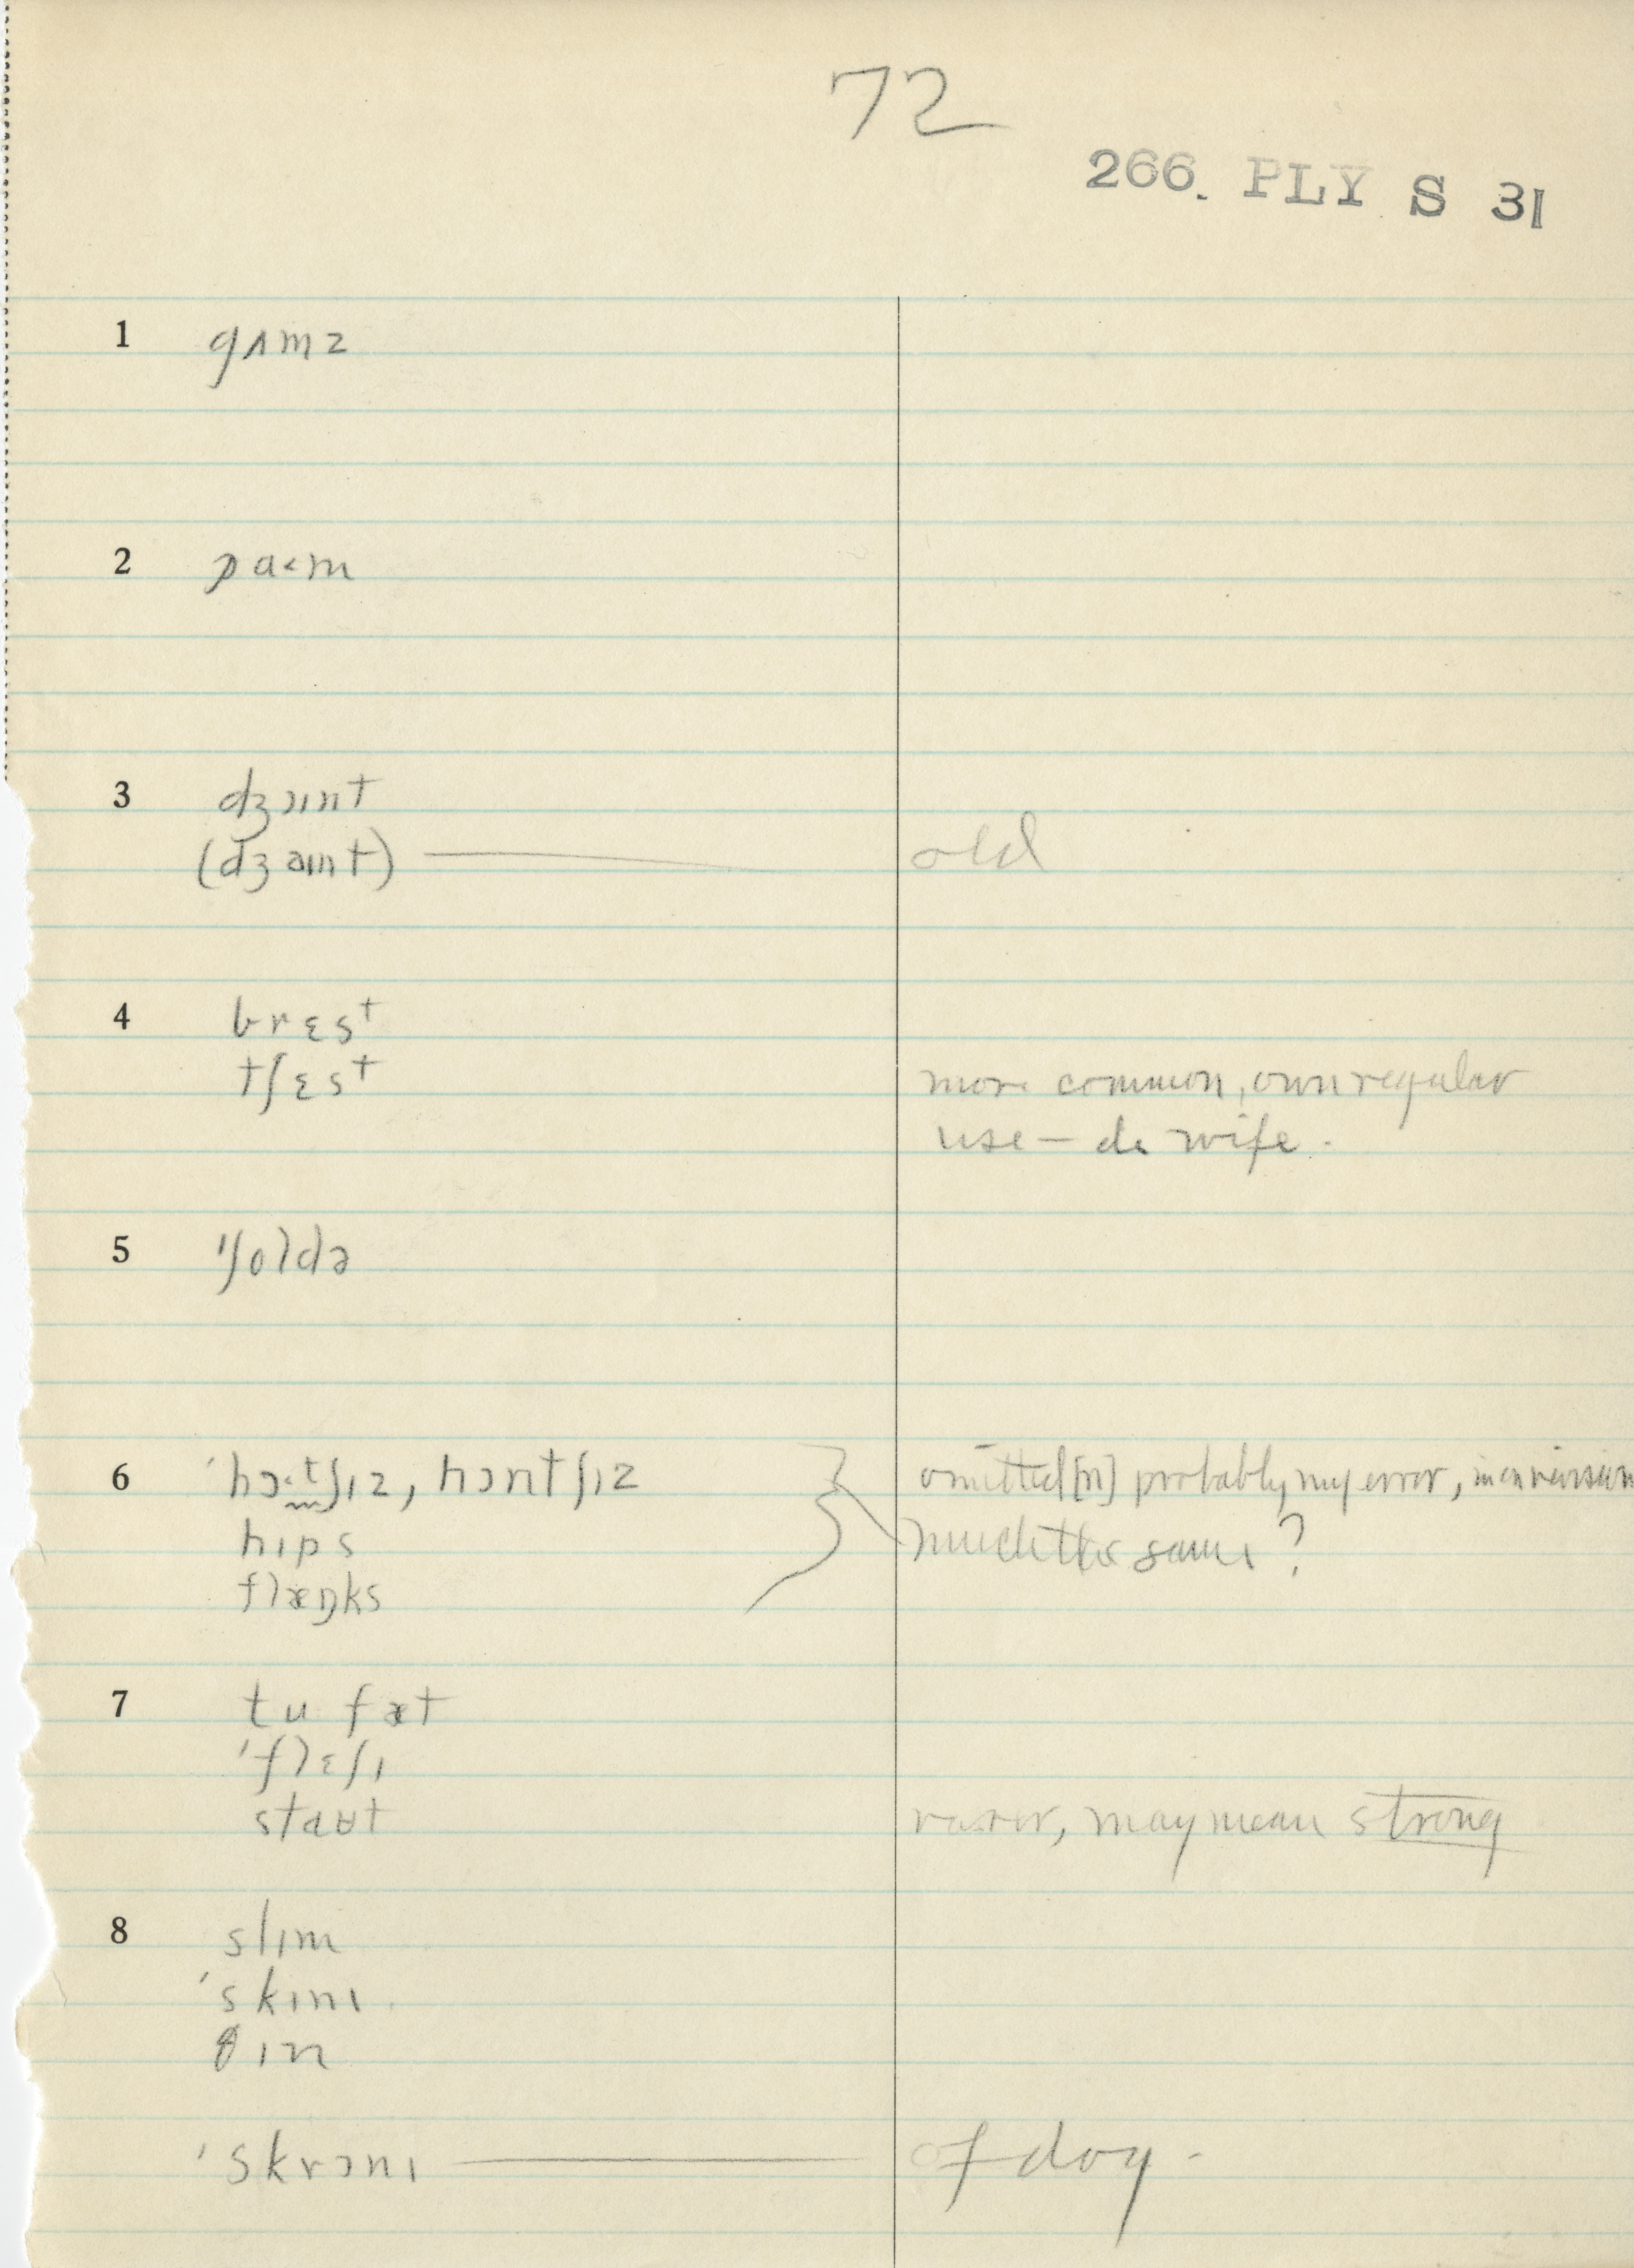 72
266. PLY S 31
1 gʌmz
2 pa<m
3 dʒɔɪnt
(dʒəɪnt) old
4 brɛst
tʃɛst more common, own regular
use — do wife.
5 'ʃoldə
6 'hɔ·tʃɪz, hɔntʃɪz omitted [n] probably my error, in conversation
hɪps much the same?
flæŋks
7 tu fæt
'flɛʃɪ
staʊt rarer, may mean strong
8 slɪm
'skɪnɪ
θɪn
'skrɔnɪ of dog.